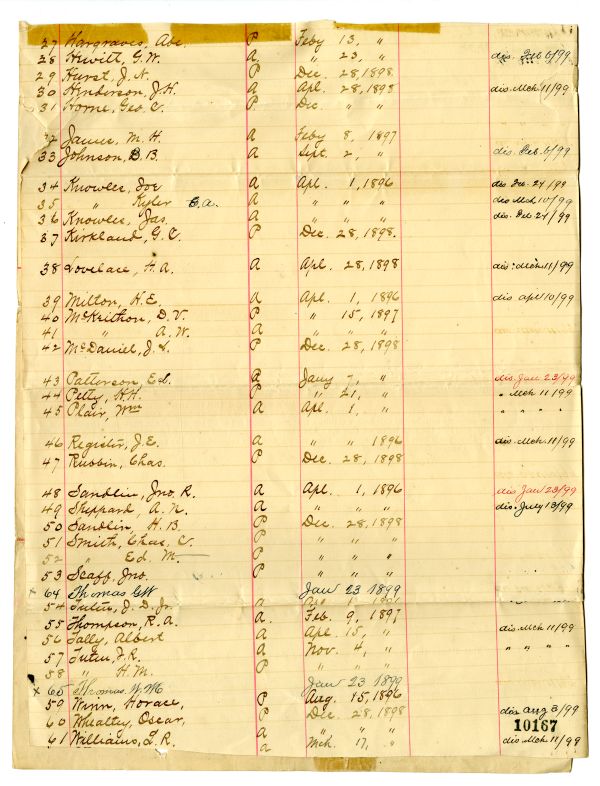 27 Hargraves, Abe. P Feby 13, "
28 Hewitt, G.W. A. " 23, " dis. Feb 6/99
29 Hurst, J.N. P Dec. 28, 1898.
30 Hinderson, J.H. A Apl. 28, 1898 dis. Mch 11/99
31 Horne, Geo. C. P Dec " "
32 James, M. H. A Feby 8, 1897
33 Johnson, D. B. A Sept. 2, " dis. Feb. 6/99
34 Knowles, Joe A Apl. 1, 1896 dis Dec. 24/99
35 " Kyler C. a. A " " " dis Mch 10/99
36 Knowles, Jas. A " " " dis. Feb 24/99
37 Kirkland, G. C. P Dec. 28, 1898.
38 Lovelace, H. A. A Apl. 28, 1898 dis. Mch. 11/99
39 Milton, H. E. A Apl. 1, 1896 dis apl 10/99
40 McKeithon, D. V. P " 15, 1897
41 " A. W. A " " "
42 McDaniel, J. S. P Dec. 28, 1898
43 Patterson, Ed. Jany 7, " dis. Jan 23/99
44 Petty, H.H. P " 21, " " Mch 11/99
45 Plair, Wm A Apl. 1, " " " " "
46 Register, J.E. A " " 1896 dis. Mch. 11/99
47 Rubbin, Chas. P Dec. 28, 1898
48 Sandlin, Jno. R. A Apl. 1, 1896 dis Jan 23/99
49 Sheppard, A. N. A " " " dis. July 13/99
50 Sandlin, H. B. P Dec. 28, 1898
51 Smith, Chas. C. P " " "
52 " Ed. M. P " " "
53 Scaff, Jno. P " " "
x 64 Thomas GW Jan 23 1899
54 J. D. Jr. A
55 Thompson, R. A. A. Feb. 9, 1897
56 Tally, Albert A Apl. 15, " dis Mch 11/99
57 J. R. A. Nov. 4, " " " " "
58 " H. M. P " "
x 65 Thomas W M Jan 23 1899
59 Winn, Horace, P Aug. 15, 1896
60 Whealtey, Oscar, P Dec. 28, 1898 dis. aug 3/99
61 Williams, L. R. A " " "
a Mch. 17, " dis. Mch 11/99
10167